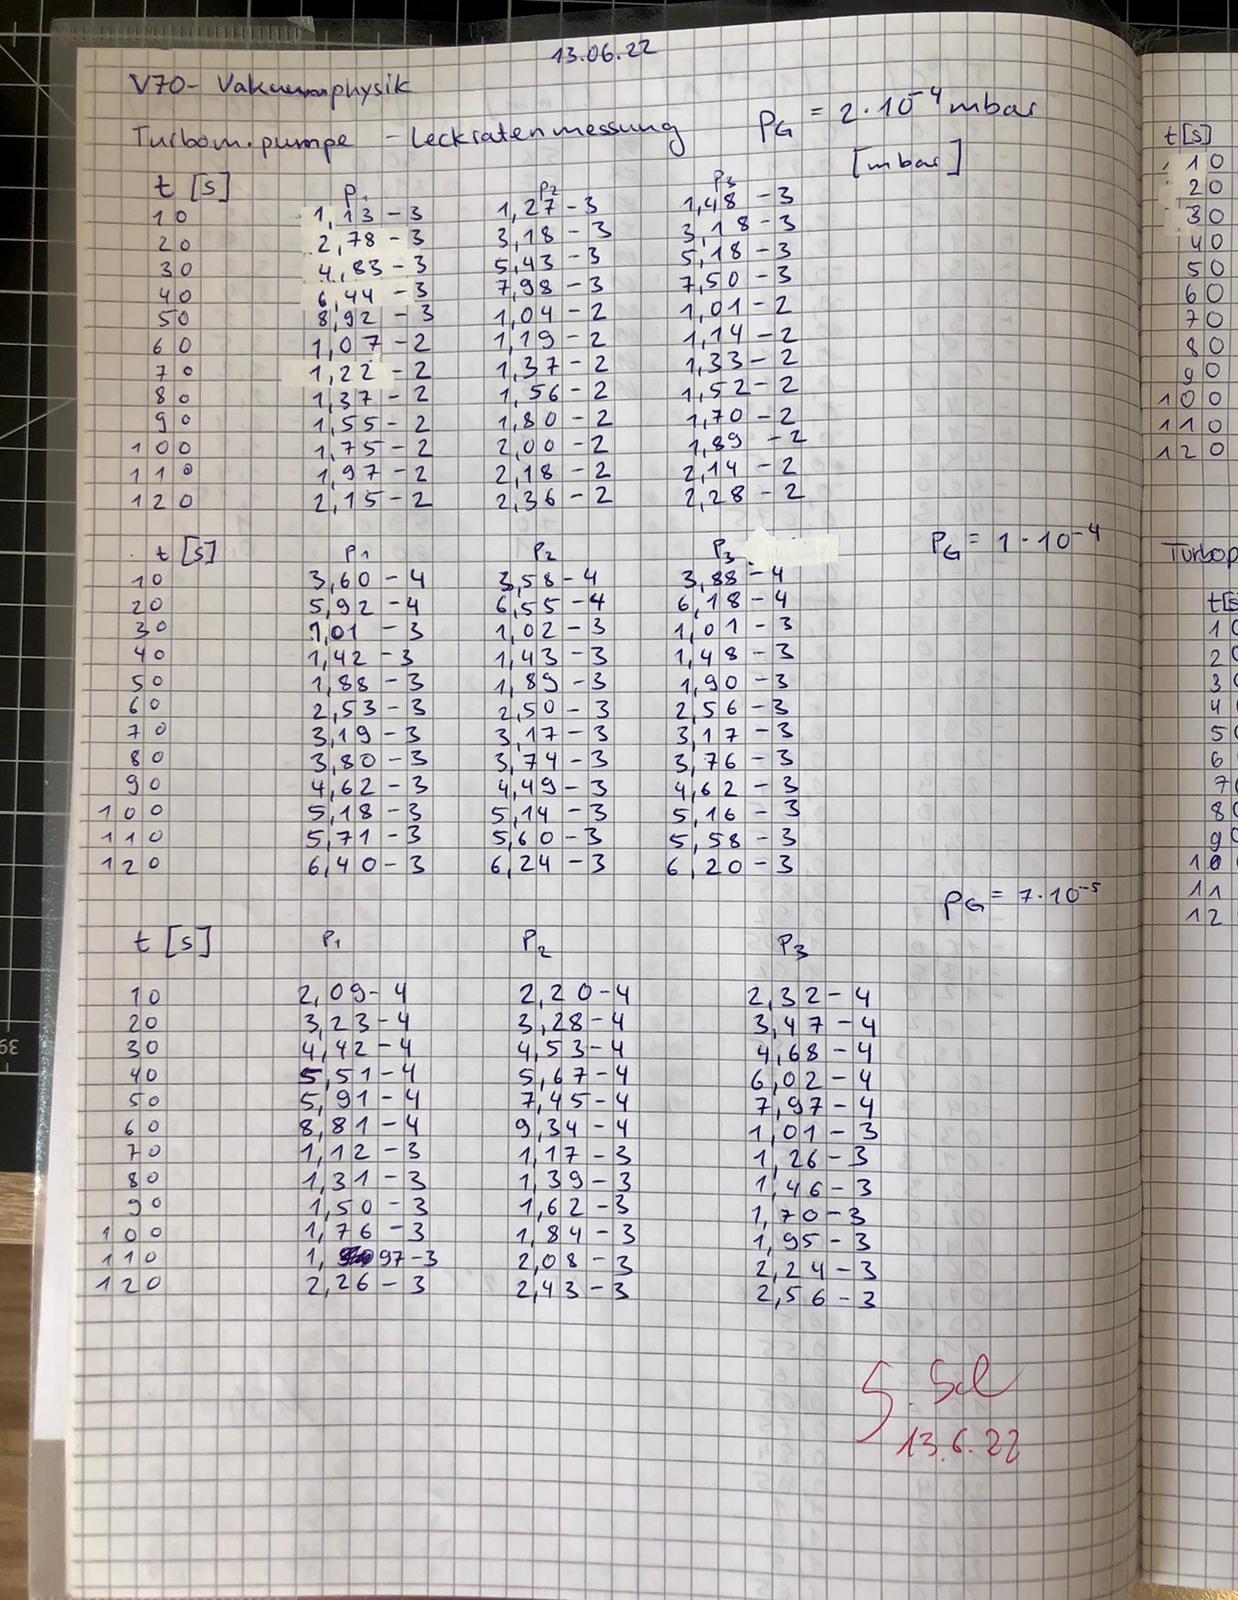 13.06.22
V70- Vakuumphysik
Turbom.pumpe - Leckratenmessung p_G = 2·10⁻⁴ mbar
[mbar]
t [s] P₁ P₂ P₃
10 1,13 - 3 1,27 - 3 1,48 - 3
20 2,78 - 3 3,18 - 3 3,18 - 3
30 4,83 - 3 5,43 - 3 5,18 - 3
40 6,44 - 3 7,98 - 3 7,50 - 3
50 8,92 - 3 1,04 - 2 1,01 - 2
60 1,07 - 2 1,19 - 2 1,14 - 2
70 1,22 - 2 1,37 - 2 1,33 - 2
80 1,37 - 2 1,56 - 2 1,52 - 2
90 1,55 - 2 1,80 - 2 1,70 - 2
100 1,75 - 2 2,00 - 2 1,89 - 2
110 1,97 - 2 2,18 - 2 2,14 - 2
120 2,15 - 2 2,36 - 2 2,28 - 2
t [s] P₁ P₂ P₃ p_G = 1·10⁻⁴
10 3,60 - 4 3,58 - 4 3,88 - 4
20 5,92 - 4 6,55 - 4 6,18 - 4
30 1,01 - 3 1,02 - 3 1,01 - 3
40 1,42 - 3 1,43 - 3 1,48 - 3
50 1,88 - 3 1,89 - 3 1,90 - 3
60 2,53 - 3 2,50 - 3 2,56 - 3
70 3,19 - 3 3,17 - 3 3,17 - 3
80 3,80 - 3 3,74 - 3 3,76 - 3
90 4,62 - 3 4,49 - 3 4,62 - 3
100 5,18 - 3 5,14 - 3 5,16 - 3
110 5,71 - 3 5,60 - 3 5,58 - 3
120 6,40 - 3 6,24 - 3 6,20 - 3
p_G = 7·10⁻⁵
t [s] P₁ P₂ P₃
10 2,09 - 4 2,20 - 4 2,32 - 4
20 3,23 - 4 3,28 - 4 3,47 - 4
30 4,42 - 4 4,53 - 4 4,68 - 4
40 5,51 - 4 5,67 - 4 6,02 - 4
50 5,91 - 4 7,45 - 4 7,97 - 4
60 8,81 - 4 9,34 - 4 1,01 - 3
70 1,12 - 3 1,17 - 3 1,26 - 3
80 1,31 - 3 1,39 - 3 1,46 - 3
90 1,50 - 3 1,62 - 3 1,70 - 3
100 1,76 - 3 1,84 - 3 1,95 - 3
110 1,97 - 3 2,08 - 3 2,24 - 3
120 2,26 - 3 2,43 - 3 2,56 - 3
13.6.22
t [s]
10
20
30
40
50
60
70
80
90
100
110
120
39